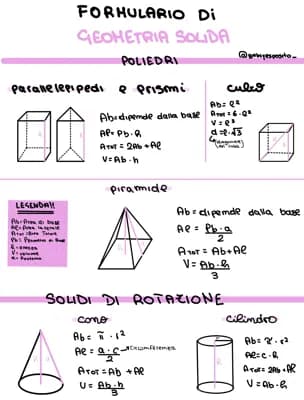 FORMULARIO DI
GEOMETRIA SOLIDA
POLIEDRI
parallelepipedi e prismi
Ab=dipende dalla base
Aℓ= Pb·h
ATOT = 2Ab+Aℓ
V=Ab·h
cubo
Ab= ℓ²
ATOT = 6·ℓ²
V = ℓ³
d=ℓ·√3
piramide
LEGENDA!!
Ab=Area di base
Aℓ=Area laterale
ATOT=Area Totale
Pb= Perimetro di Base
V=volume
a= apotema
Ab=dipende dalla base
Aℓ = Pb·a
2
ATOT = Ab+Aℓ
V= Ab·h
3
SOLIDI DI ROTAZIONE
cono
Ab= π·r²
Aℓ = a·c → circonferenza
2
ATOT=Ab +Aℓ
V= Ab·h
3
cilindro
Ab= π·r²
Aℓ=c·h
ATOT= 2Ab+Aℓ
V=Ab·h